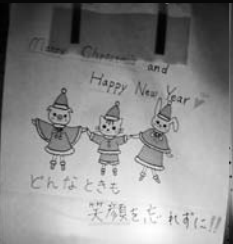 Merry Christmas and
Happy New Year
どんなときも
笑顔を忘れずに!!